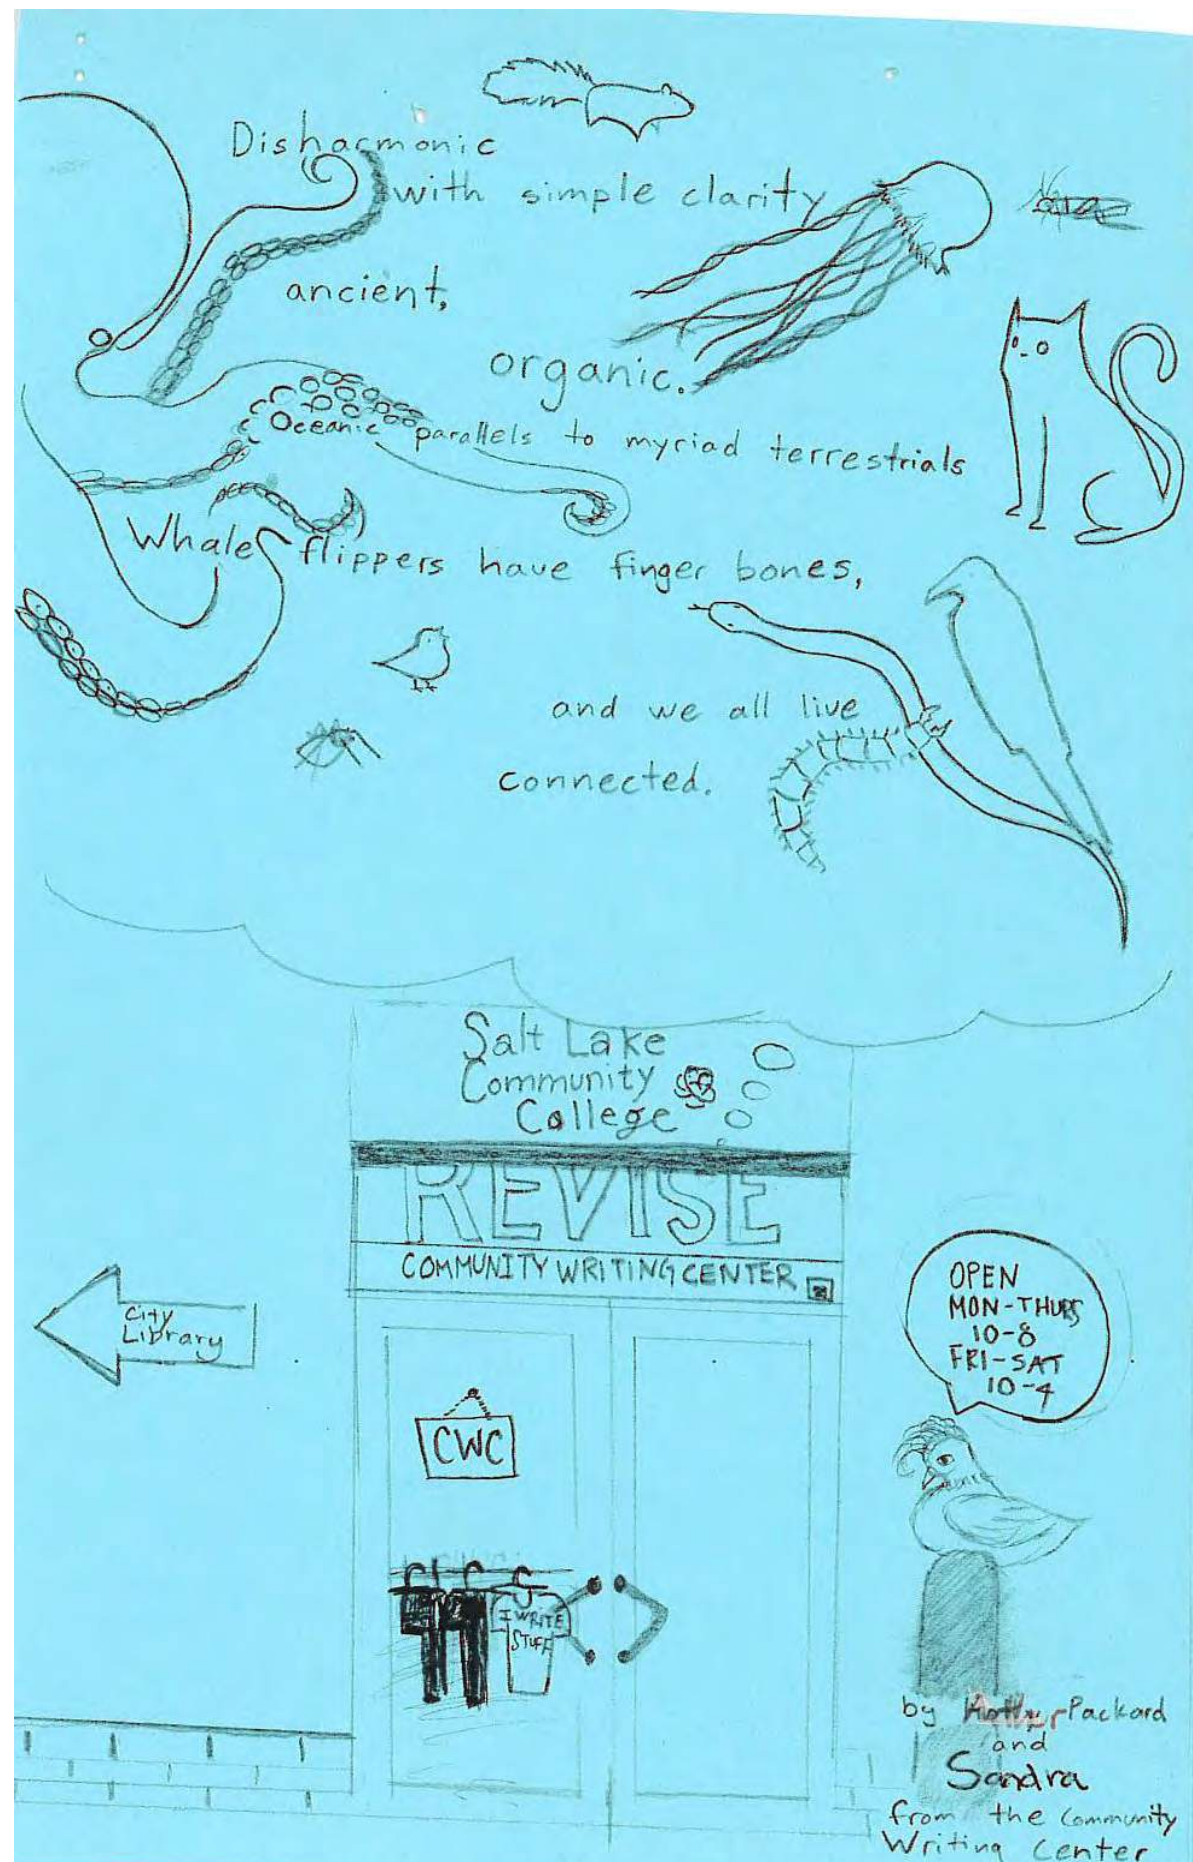 Disharmonic
with simple clarity
ancient,
organic.
Oceanic parallels to myriad terrestrials
Whale flippers have finger bones,
and we all live
connected.
Salt Lake
Community
College
REVISE
COMMUNITY WRITING CENTER
City
Library
OPEN
MON-THURS
10-8
FRI-SAT
10-4
CWC
I WRITE
STUFF
by Packard
and
Sandra
from the Community
Writing Center